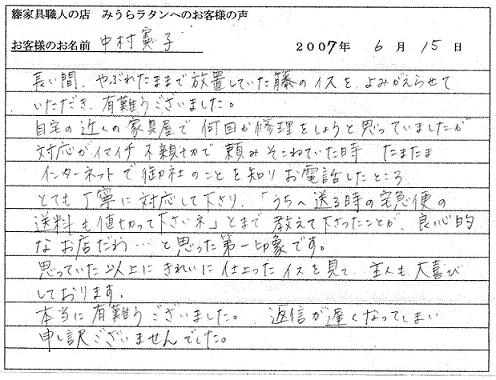 籐家具職人の店　みうらラタンへのお客様の声
お客様のお名前　中村寅子　2007年　6月　15日
長い間、やぶれたままで放置していた籐のイスを、よみがえらせて
いただき、有難うございました。
自宅の近くの家具屋で何回か修理をしようと思っていましたが
対応がイマイチ不親切で頼みそこねていた時　たまたま
インターネットで御社のことを知りお電話したところ
とても丁寧に対応して下さり、「うちへ送る時の宅急便の
送料も値切って下さいネ」とまで教えて下さったことが、良心的
なお店だわ…と思った第一印象です。
思っていた以上にきれいに仕上ったイスを見て、主人も大喜び
しております。
本当に有難うございました。　返信が遅くなってしまい
申し訳ございませんでした。